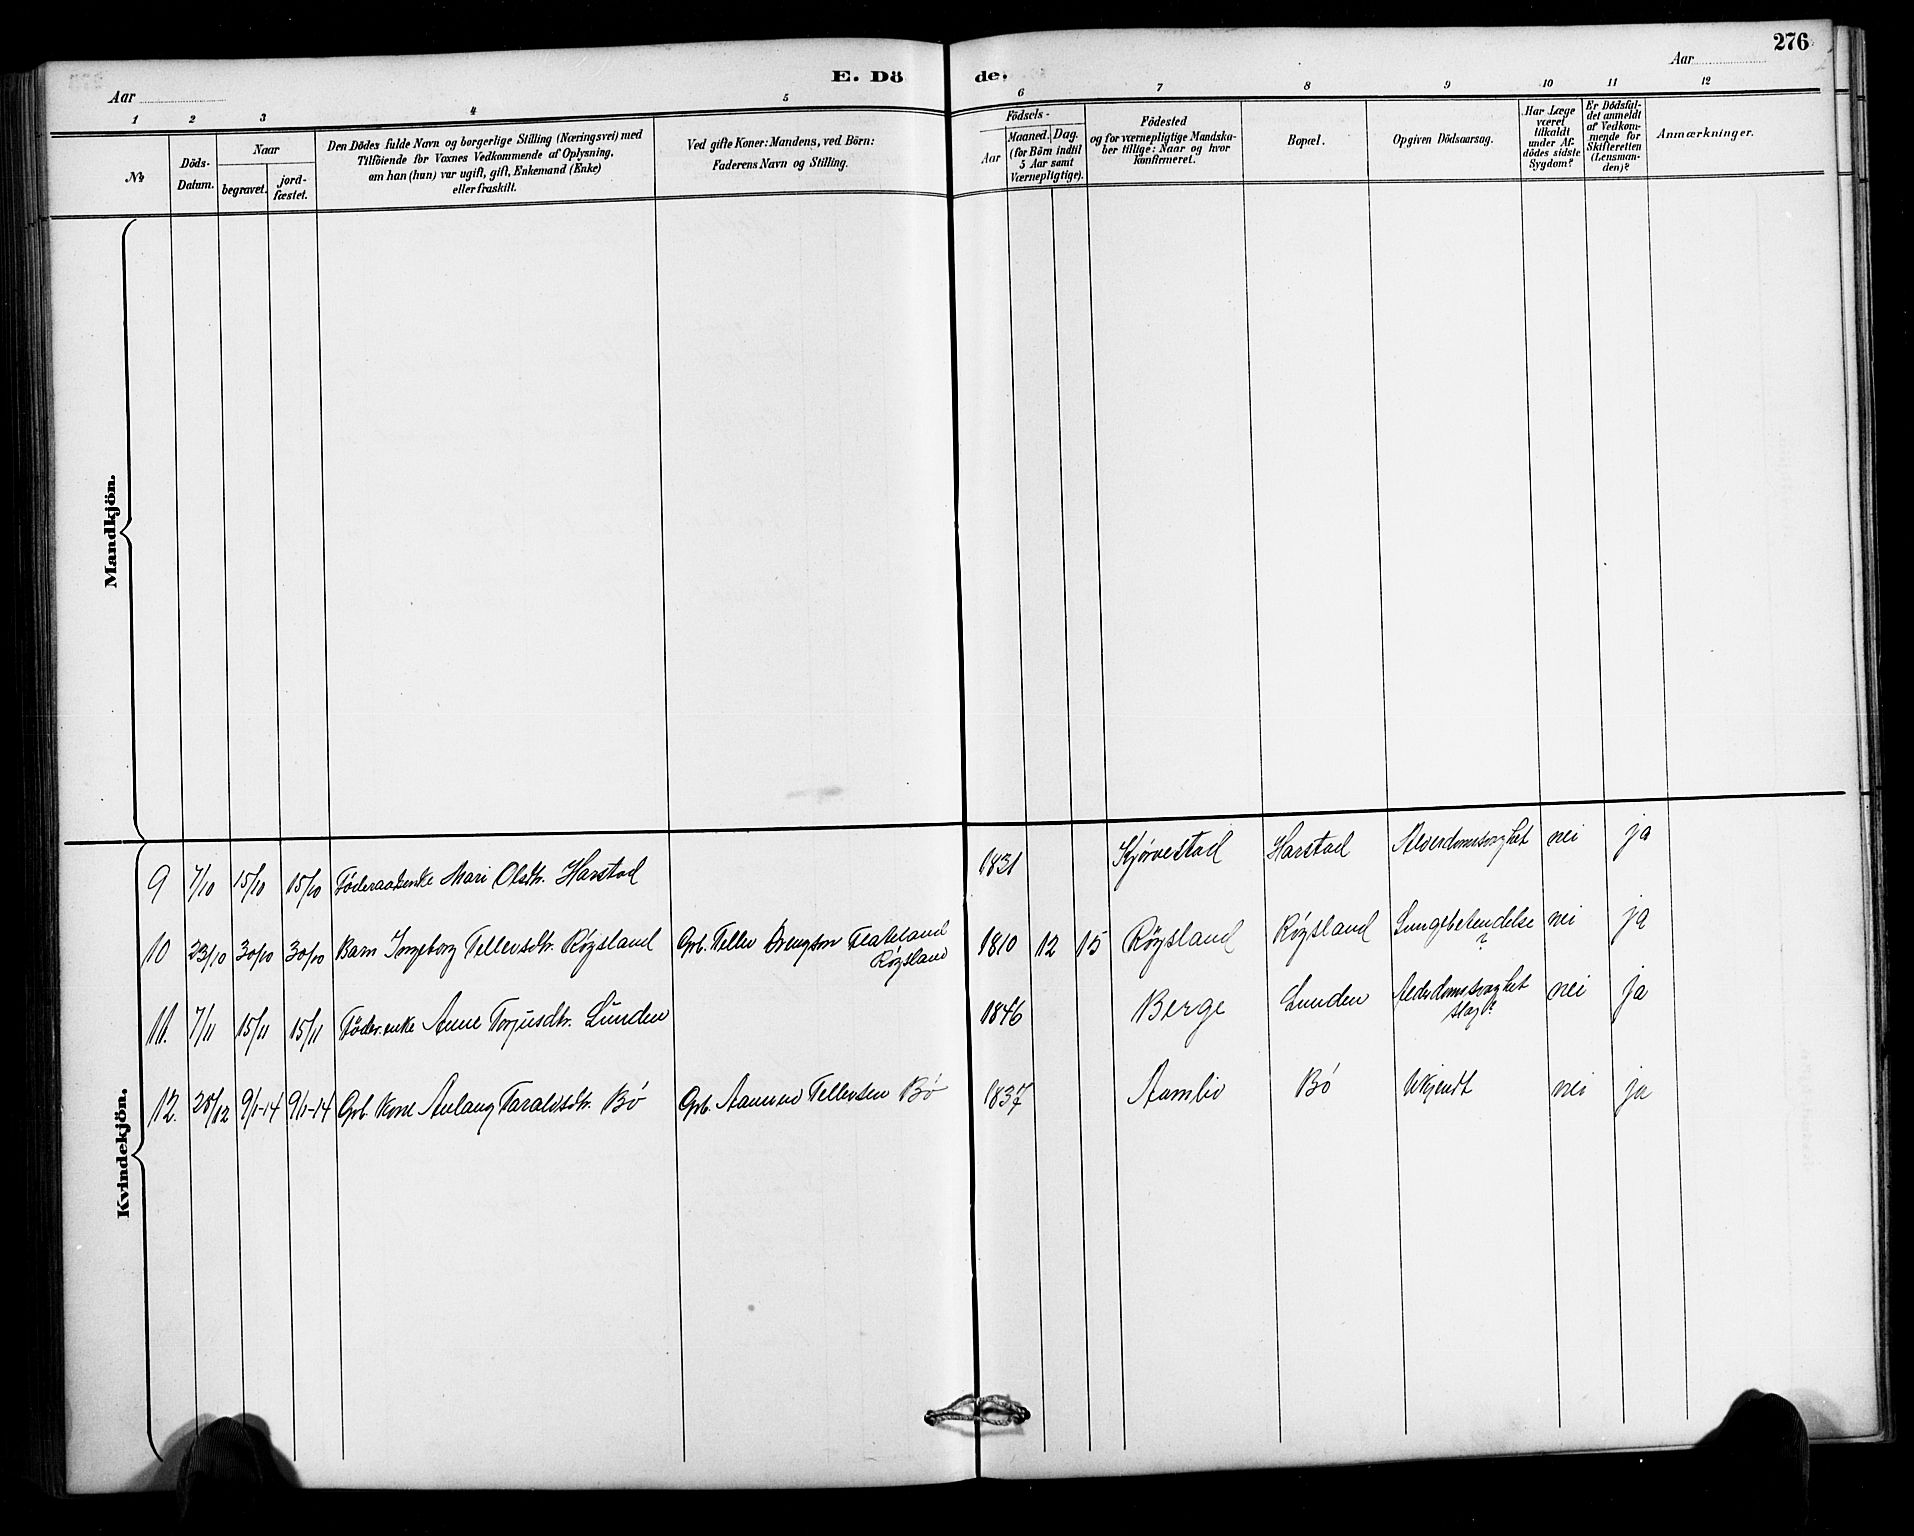 276
Aar
E. Dö de.
Aar
1 2 3 4 5 6 7 8 9 10 11 12
№
Döds-
Datum.
Naar
begravet.
jord-
fæstet.
Den Dödes fulde Navn og borgerlige Stilling (Næringsvei) med
Tilföiende for Voxnes Vedkommende af Oplysning,
om han (hun) var ugift, gift, Enkemand (Enke)
eller fraskilt.
Ved gifte Koner: Mandens, ved Börn:
Faderens Navn og Stilling.
Födsels-
Aar
Maaned. Dag.
(for Börn indtil
5 Aar samt
Værnepligtige).
Födested
og for værnepligtige Mandska-
ber tillige: Naar og hvor
konfirmeret.
Bopæl.
Opgiven Dödsaarsag.
Har Læge
været
tilkaldt
under Af-
dödes sidste
Sygdom?
Er Dödsfal-
det anmeldt
af Vedkom-
mende for
Skifteretten
(Lensman-
den)?
Anmærkninger.
Mandkjön.
Kvindekjön.
9 7/10 15/10 15/10 Föderaadsenke Mari Olsdtr. Harstad 1831 Kjørvestad Harstad Alderdomssvaghet nei ja
10 23/10 30/10 30/10 Barn Ingeborg Tellevsdtr. Røysland Grb. Tellev Drengson Flateland 1810 12 15 Røysland Røysland Lungebetendelse nei ja
Røysland
?
11. 7/11 15/11 15/11 Föder.enke Anne Torjusdtr. Lunden 1846 Berge Lunden Alderdomssvaghet nei ja
slag?
12. 28/12 9/1-14 9/1-14 Grb. Kone Anlaug Taraldsdtr. Bø Grb. Aanund Tellevsen Bø 1837 Aamli Bø Ukjendt nei ja